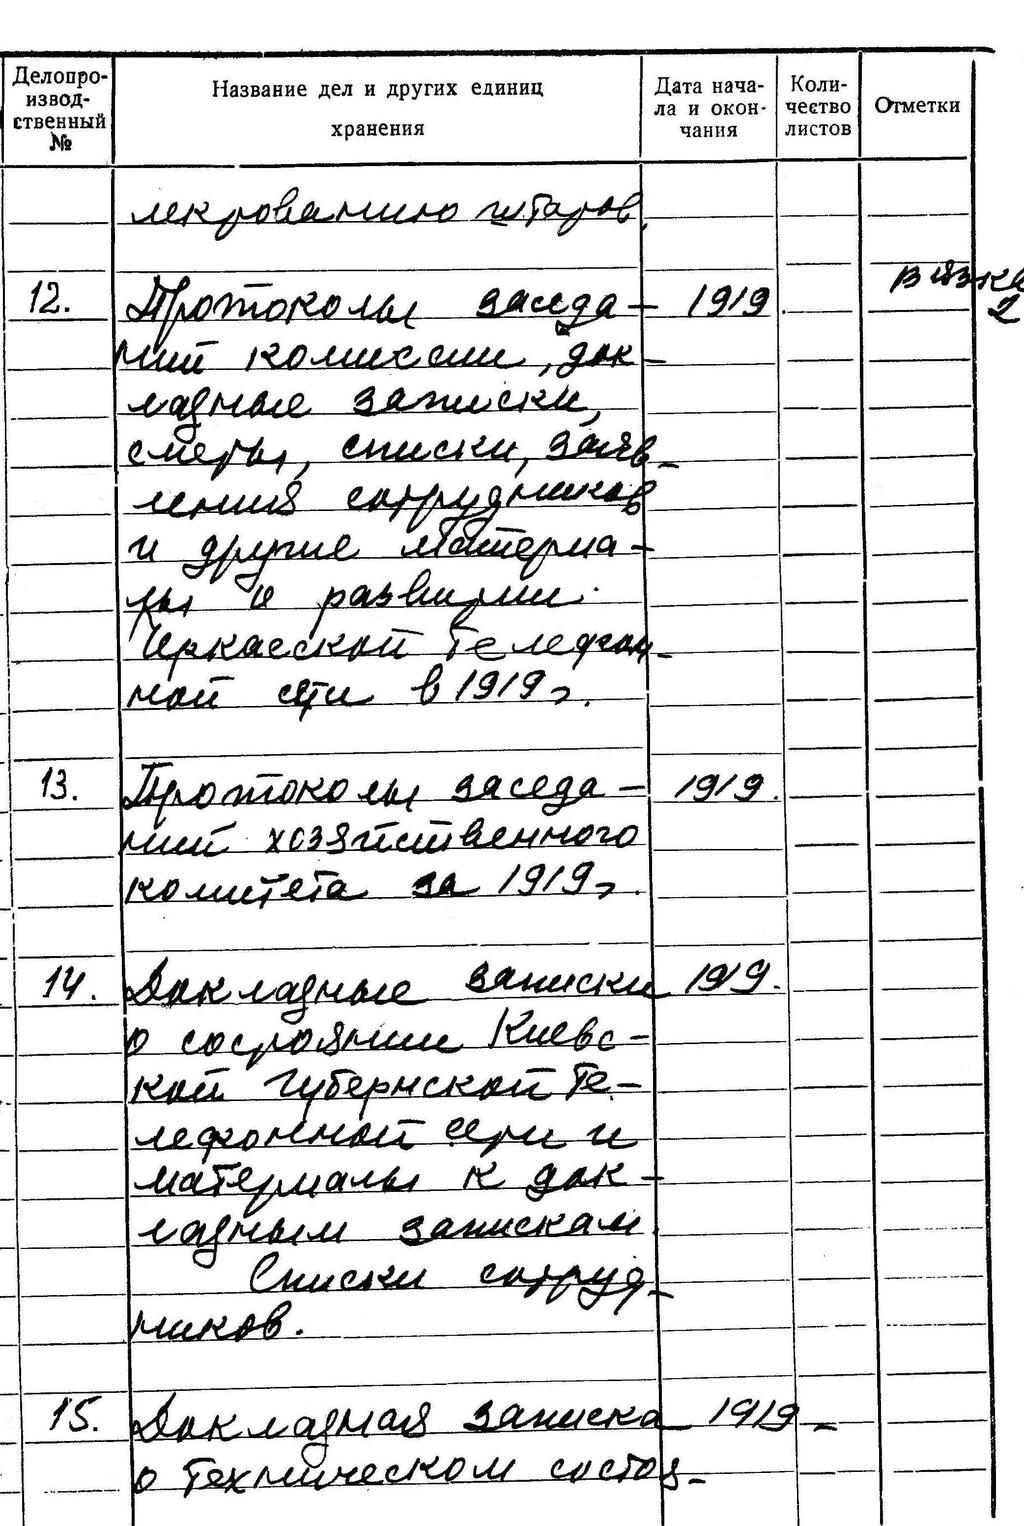 Делопро-
извод-
ственный
№
Название дел и других единиц
хранения
Дата нача-
ла и окон-
чания
Коли-
чество
листов
Отметки
штатов
12. Протоколы заседа- 1919
ний комиссии, док-
ладные записки,
сметы, списки, заяв-
ления сотрудников
и другие материа-
лы о развитии
Черкасской телефон-
ной сети в 1919 г.
13. Протоколы заседа- 1919.
ний хозяйственного
комитета за 1919 г.
14. Докладные записки 1919.
о состоянии Киевс-
кой губернской те-
лефонной сети и
материалы к док-
ладным запискам.
Списки сотруд-
ников.
15. Докладная записка 1919
о техническом состоя-